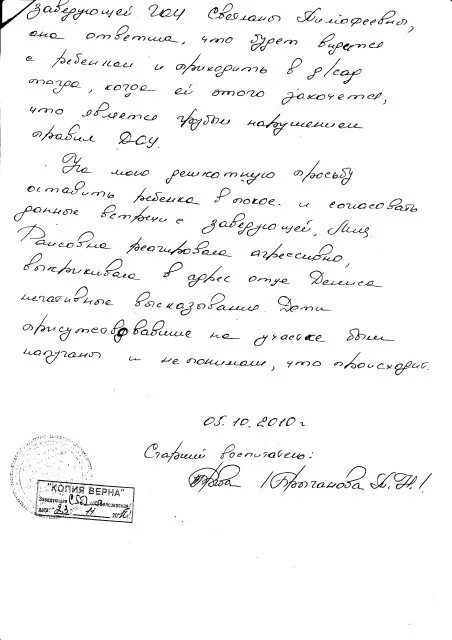 заведующей ГОУ Светланы Тимофеевны,
она ответила, что будет видется
с ребенком и приходить в д/сад
тогда, когда ей этого захочется,
что является грубым нарушением
правил ДОУ.
На мою деликатную просьбу
оставить ребенка в покое и согласовать
данные встречи с заведующей,
Раисовна реагировала агрессивно,
выкрикивала в адрес отца Дениса
негативные высказывания. Дети
присутствовавшие на участке были
напуганы и не понимали, что происходит.
05.10.2010г.
Старший воспитатель:
"КОПИЯ ВЕРНА"
Заведующая
Дата: 23 11 20